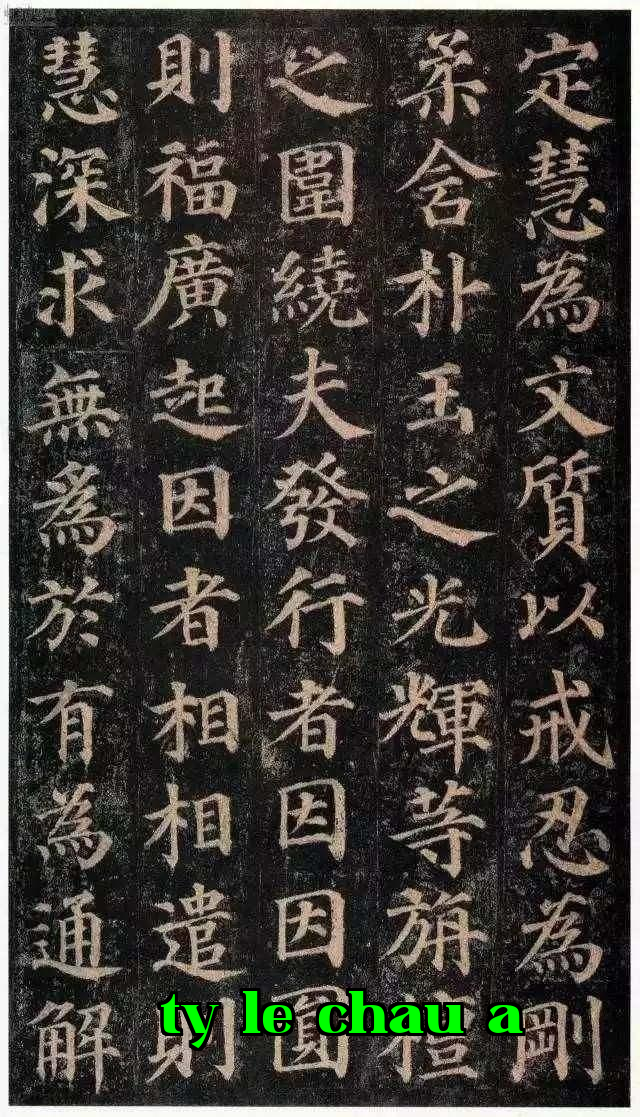 定慧為文質以戒忍為剛
柔含朴玉之光輝等旃檀
之圍繞夫發行者因因圓
則福廣起因者相相遣則
慧深求無為於有為通解
ty le chau a